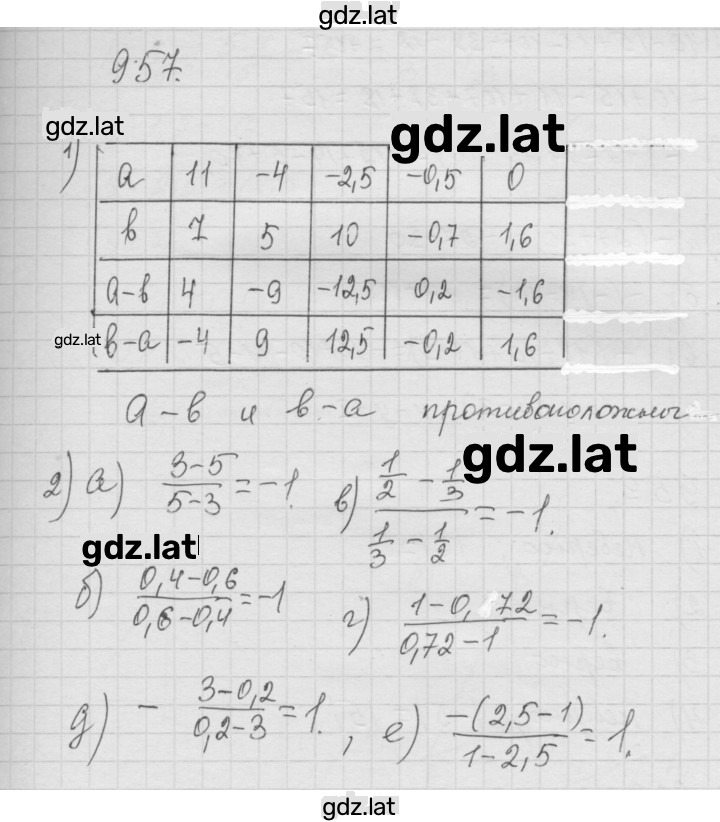 gdz.lat
957.
gdz.lat
gdz.lat
1)
a 11 -4 -2,5 -0,5 0
в 7 5 10 -0,7 1,6
a-в 4 -9 -12,5 0,2 -1,6
gdz.lat
в-a -4 9 12,5 -0,2 1,6
a-в и в-a противоположны
gdz.lat
2) а) (3-5)/(5-3) = -1. в) (1/2 - 1/3)/(1/3 - 1/2) = -1.
gdz.lat
б) (0,4-0,6)/(0,6-0,4) = -1 г) (1-0,72)/(0,72-1) = -1.
д) - (3-0,2)/(0,2-3) = 1. , е) (-(2,5-1))/(1-2,5) = 1.
gdz.lat